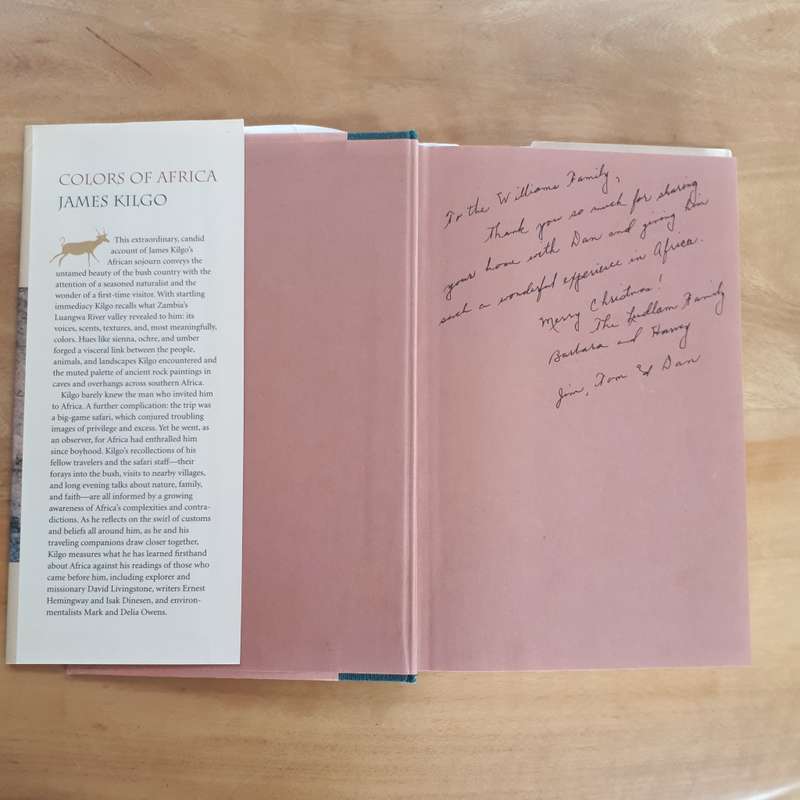 COLORS OF AFRICA
JAMES KILGO
This extraordinary, candid
account of James Kilgo's
African sojourn conveys the
untamed beauty of the bush country with the
attention of a seasoned naturalist and the
wonder of a first-time visitor. With startling
immediacy Kilgo recalls what Zambia's
Luangwa River valley revealed to him: its
voices, scents, textures, and, most meaningfully,
colors. Hues like sienna, ochre, and umber
forged a visceral link between the people,
animals, and landscapes Kilgo encountered and
the muted palette of ancient rock paintings in
caves and overhangs across southern Africa.
Kilgo barely knew the man who invited him
to Africa. A further complication: the trip was
a big-game safari, which conjured troubling
images of privilege and excess. Yet he went, as
an observer, for Africa had enthralled him
since boyhood. Kilgo's recollections of his
fellow travelers and the safari staff—their
forays into the bush, visits to nearby villages,
and long evening talks about nature, family,
and faith—are all informed by a growing
awareness of Africa's complexities and contra-
dictions. As he reflects on the swirl of customs
and beliefs all around him, as he and his
traveling companions draw closer together,
Kilgo measures what he has learned firsthand
about Africa against his readings of those who
came before him, including explorer and
missionary David Livingstone, writers Ernest
Hemingway and Isak Dinesen, and environ-
mentalists Mark and Delia Owens.
To the Williams Family,
Thank you so much for sharing
your home with Dan and giving him
such a wonderful experience in Africa.
Merry Christmas!
The Ludlam Family
Barbara and Harvey
Jim, Tom & Dan